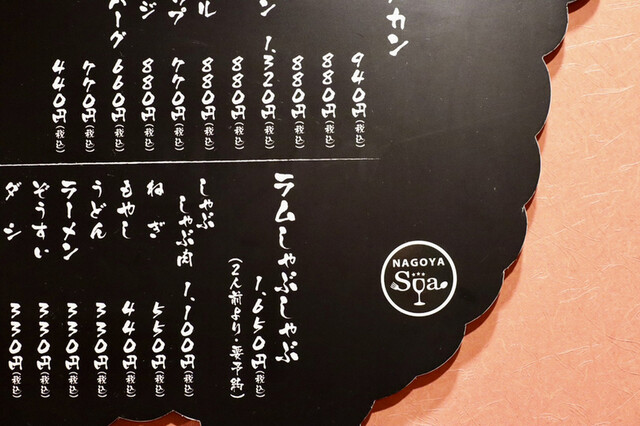 カン 940円(税込)
880円(税込)
880円(税込)
ン 1,320円(税込)
880円(税込)
ル 880円(税込)
ップ 770円(税込)
ジ 880円(税込)
バーグ 660円(税込)
770円(税込)
440円(税込)
ラムしゃぶしゃぶ
1,650円(税込)
(2人前より・要予約)
しゃぶ
しゃぶ肉 1,100円(税込)
ねぎ 550円(税込)
もやし 440円(税込)
うどん 330円(税込)
ラーメン 330円(税込)
ぞうすい 330円(税込)
ダシ 330円(税込)
NAGOYA
Spa